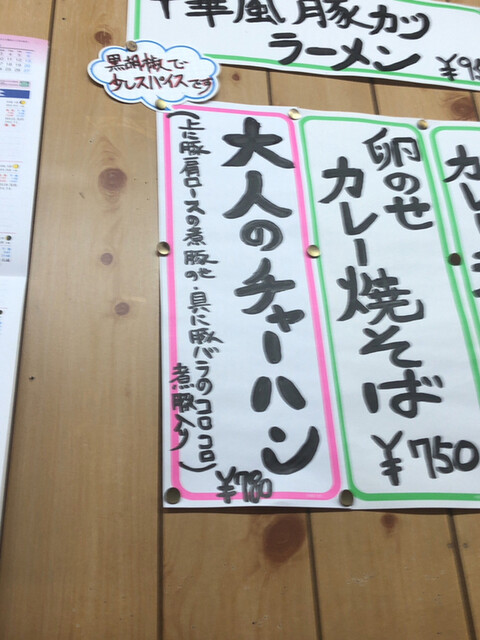 中華風豚カツ
ラーメン
黒胡椒で
少しスパイスです
卵のせ
カレー焼そば
¥750
大人のチャーハン
(上に豚肩ロースの煮豚のせ・具に豚バラのコロコロ
煮豚入り)
¥780